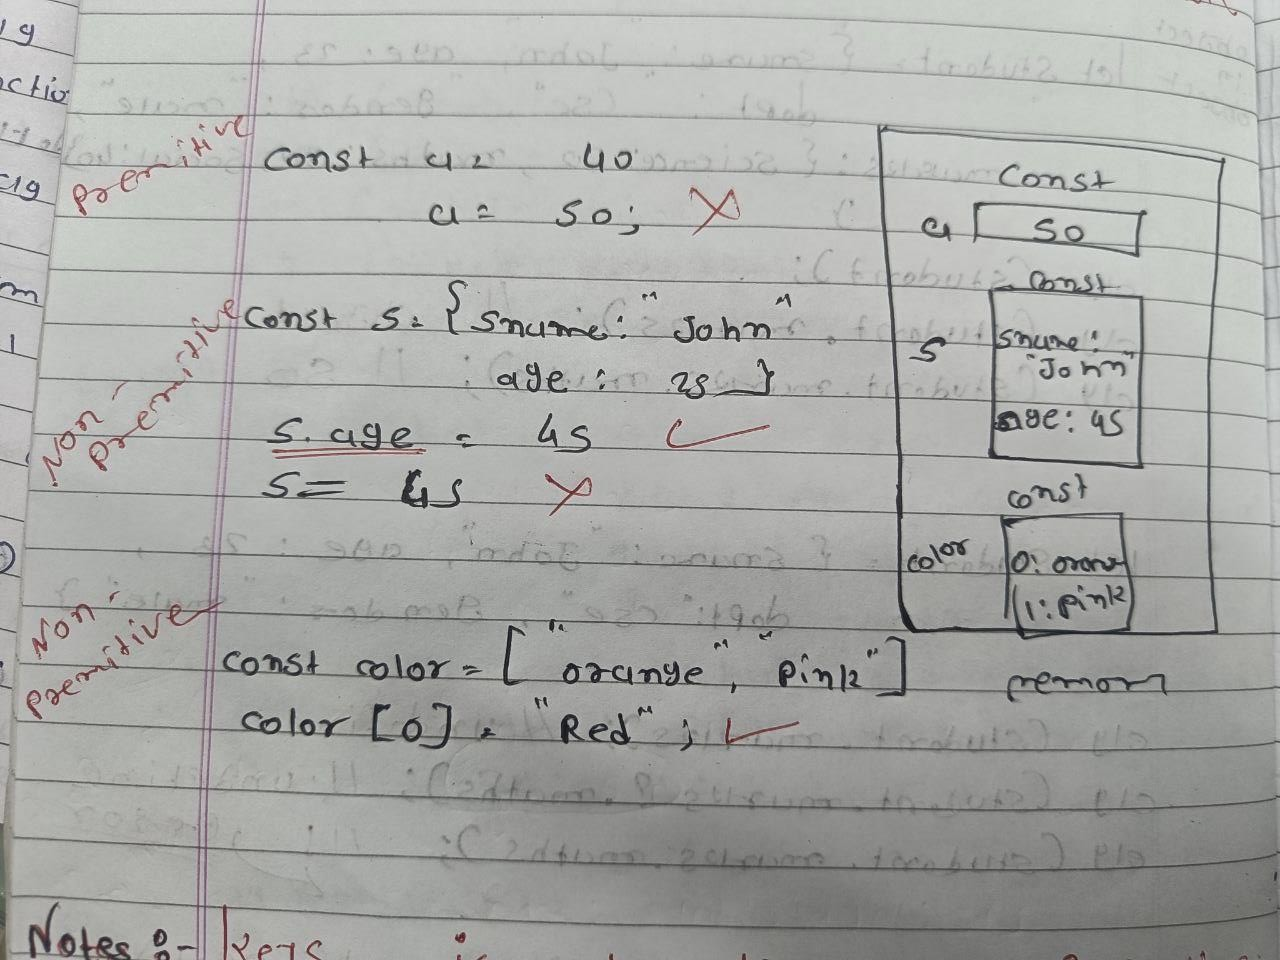 19
ctio
19
m
1
premitive
const a = 40
a = 50; X
Non-premitive
const s = { sname: "John"
age: 25 }
s.age = 45 ✓
s = 45 X
Non-premitive
const color = [ "orange", "pink" ]
color [0] = "Red"; ✓
const
a 50
const
s sname: "John"
age: 45
const
color 0: orange
1: pink
memory
Notes :- keys is